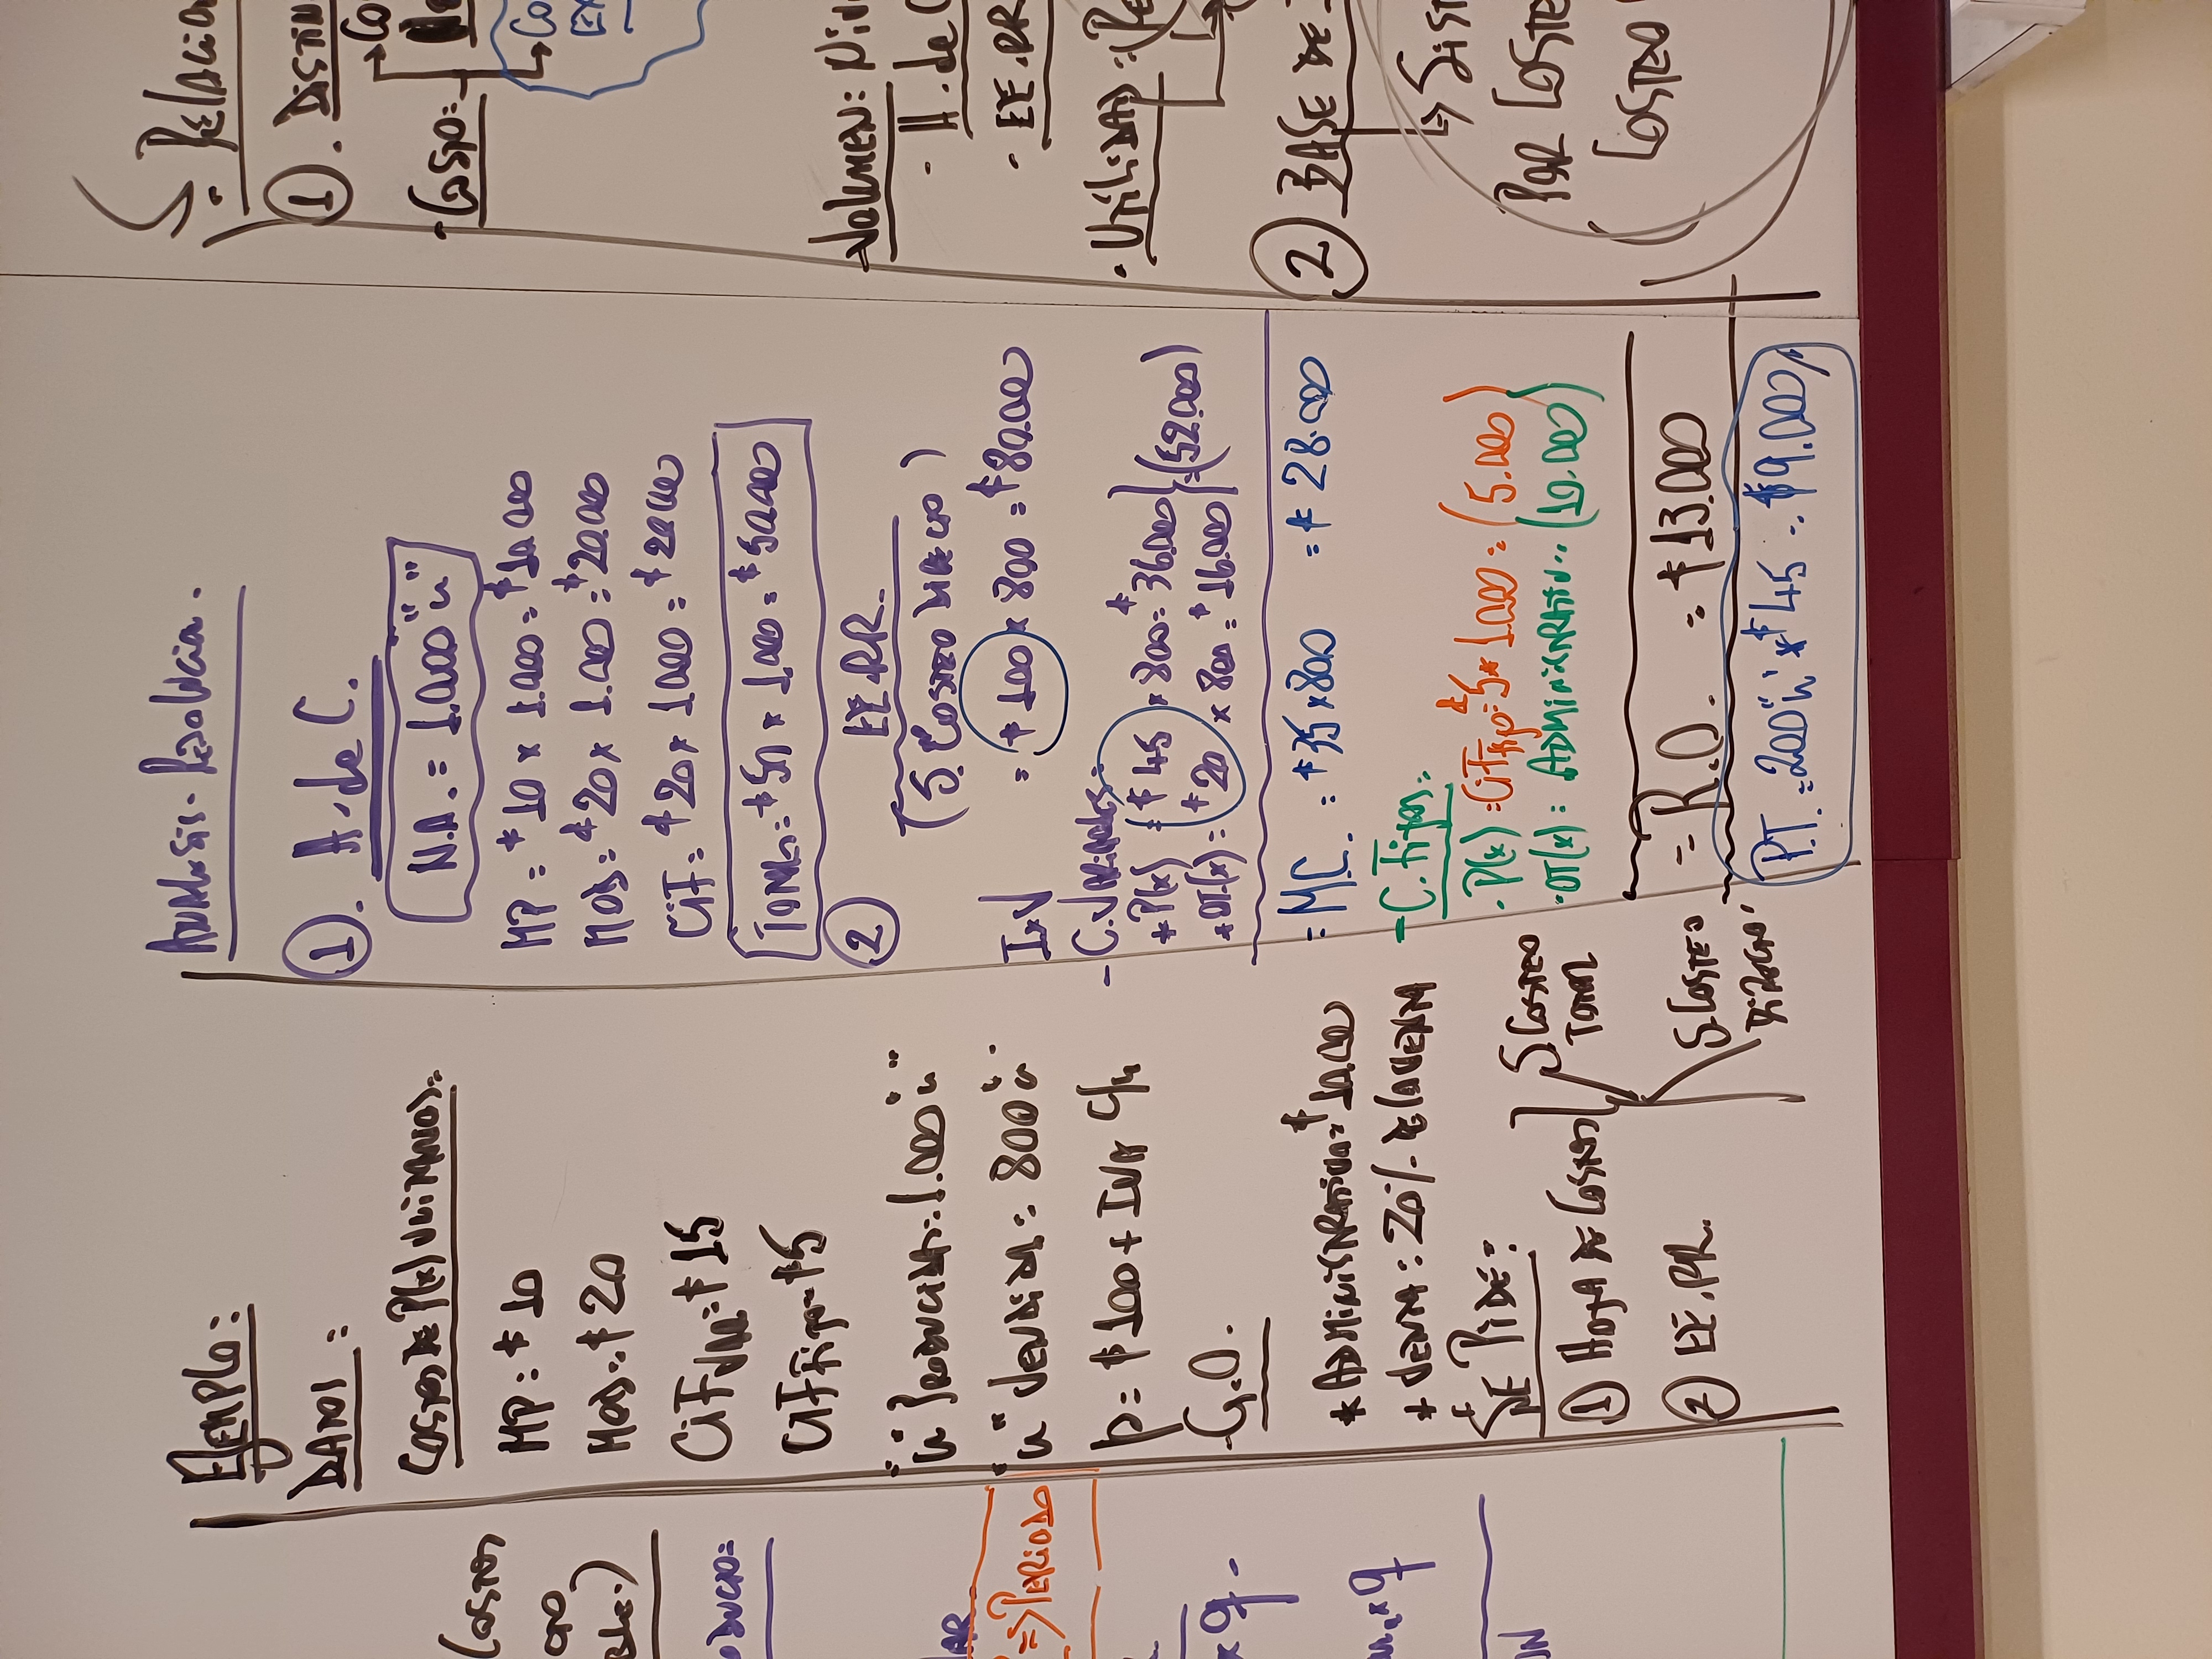 Costos
=> PERIODO
x q -
x q
EJEMPLO:
DATOS:
COSTOS DE P(x) UNITARIOS:
MP: $ 10
MOD: $ 20
CIF VAR: $ 15
CIF Fijo = $5
"u" PRODUCIDAS: 1.000 "u"
"u" VENDIDAS = 800 "u"
p = $ 100 + IVA c/u
- G.O.
* ADMINISTRATIVO = $ 10.000
* VENTA: 20% DE LA VENTA
SE PIDE:
① HOJA DE COSTOS
② EE.RR.
S. COSTEO
TOTAL
S. COSTEO
DIRECTO
ANALISIS - RESOLUCION.
①. H. de C.
N.A. = 1.000 "u"
MP = $ 10 x 1.000 = $ 10.000
MOD = $ 20 x 1.000 = $ 20.000
CIF = $ 20 x 1000 = $ 20.000
TOTAL = $ 50 x 1.000 = $ 50.000
② EE.RR.
(S. COSTEO DIRECTO)
IxV = $ 100 x 800 = $ 80.000
- C. VARIABLES:
* P(x) = $ 45 x 800 = $ 36.000
* OT.(x) = $ 20 x 800 = $ 16.000 = (52.000)
= M.C. = $ 35 x 800 = $ 28.000
- C. Fijos:
. P(x) = CIF Fijo = $ 5 x 1.000 = (5.000)
. OT(x) : ADMINISTRATIVO (10.000)
= R.O. = $ 13.000
P.T. = 200 "u" x $ 45 = $ 9.000
①. DISTIN
- COSTO:
Co
Co
- VOLUMEN: NIV
- H. de C
- EE.RR
- UTILIDAD =
② BASE DE
SIST
POR COSTE
COSTEO